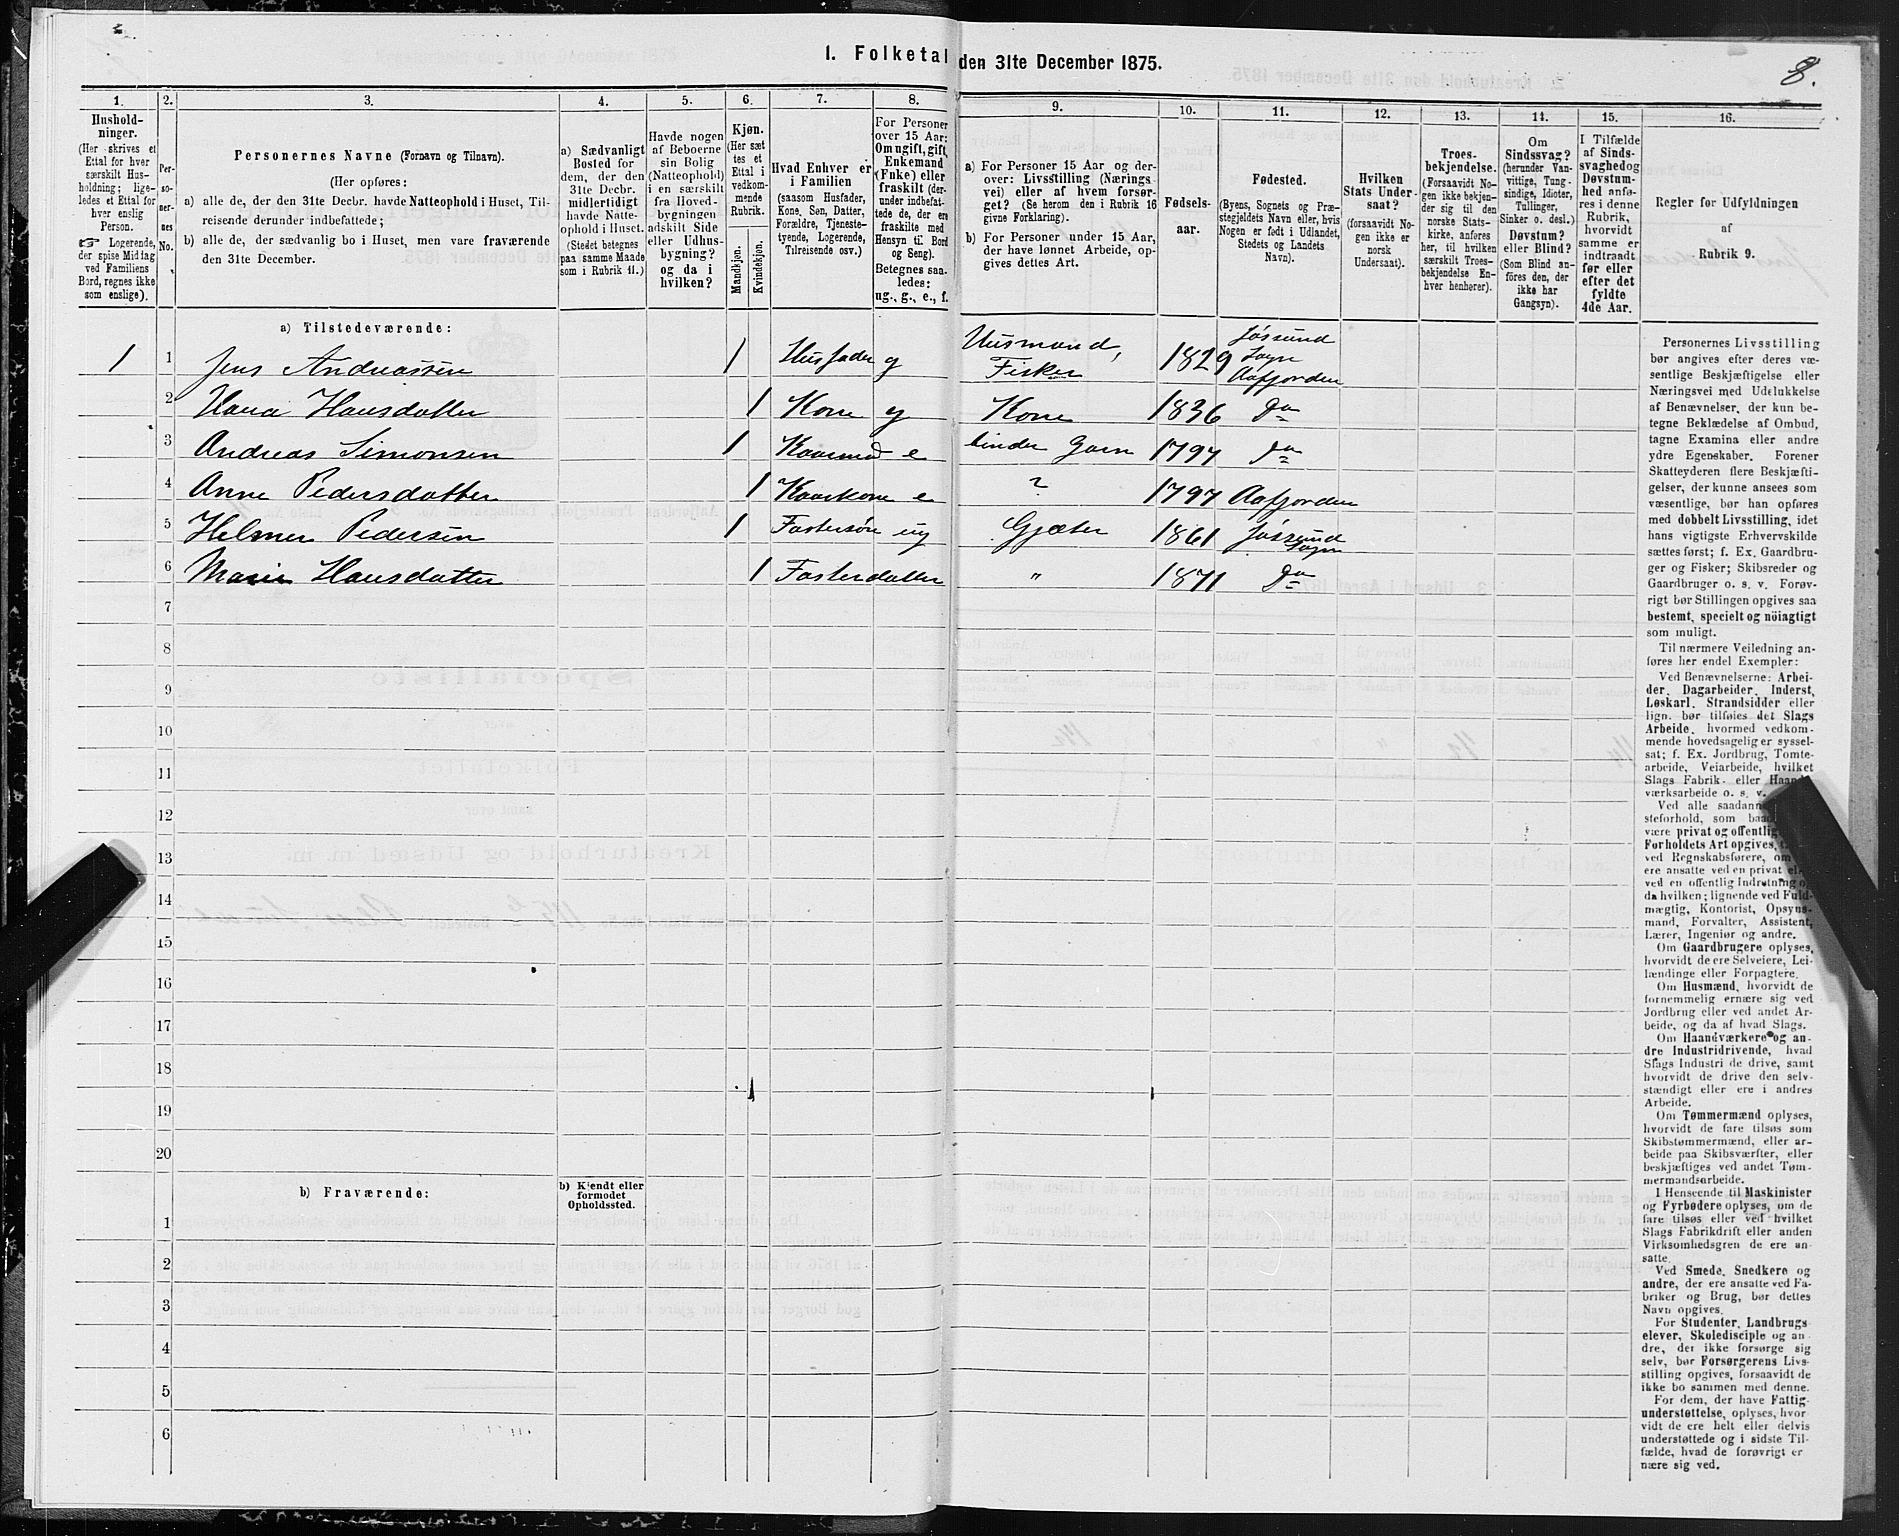 1. Folketal den 31te December 1875.
8.
1. 2. 3. 4. 5. 6. 7. 8. 9. 10. 11. 12. 13. 14. 15. 16.
Hushold-
ninger.
(Her skrives et
Ettal for hver
særskilt Hus-
holdning; lige-
ledes et Ettal for
hver enslig
Person.
☞ Logerende,
der spise Middag
ved Familiens
Bord, regnes ikke
som enslige).
Per-
so-
ner-
nes
No.
Personernes Navne (Fornavn og Tilnavn).
(Her opføres:
a) alle de, der den 31te Decbr. havde Natteophold i Huset, Til-
reisende derunder indbefattede;
b) alle de, der sædvanlig bo i Huset, men vare fraværende
den 31te December.
a) Sædvanligt
Bosted for
dem, der den
31te Decbr.
midlertidigt
havde Natte-
ophold i Huset.
(Stedet betegnes
paa samme Maade
som i Rubrik 11.)
Havde nogen
af Beboerne
sin Bolig
(Natteophold)
i en særskilt
fra Hoved-
bygningen
adskilt Side
eller Udhus-
bygning?
og da i
hvilken?
Kjøn.
(Her sæt
tes et
Ettal i
vedkom-
mende
Rubrik.
Mandkjøn.
Kvindekjøn.
Hvad Enhver er
i Familien
(saasom Husfader,
Kone, Søn, Datter,
Forældre, Tjeneste-
tyende, Logerende,
Tilreisende osv.)
For Personer
over 15 Aar:
Om ugift, gift,
Enkemand
(Enke) eller
fraskilt (der-
under indbefat-
tede de, der ere
fraskilte med
Hensyn til Bord
og Seng).
Betegnes saa-
ledes:
ug., g., e., f.
a) For Personer 15 Aar og der-
over: Livsstilling (Nærings-
vei) eller af hvem forsør-
get? (Se herom den i Rubrik 16
givne Forklaring).
b) For Personer under 15 Aar,
der have lønnet Arbeide, op-
gives dettes Art.
Fødsels-
aar.
Fødested.
(Byens, Sognets og Præ-
stegjeldets Navn eller, hvis
Nogen er født i Udlandet,
Stedets og Landets
Navn).
Hvilken
Stats Under-
saat?
(forsaavidt No-
gen ikke er
norsk
Undersaat).
Troes-
bekjendelse.
(Forsaavidt No-
gen ikke bekjen-
der sig til den
norske Stats-
kirke, anføres
her, til hvilken
særskilt Troes-
bekjendelse En-
hver henhører).
Om
Sindssvag?
(herunder Van-
vittige, Tung-
sindige, Idioter,
Tullinger,
Sinker o. desl.)
Døvstum?
eller Blind?
(Som Blind an-
føres den, der
ikke har
Gangsyn).
I Tilfælde
af Sinds-
svaghed og
Døvstum-
hed anfø-
res i denne
Rubrik,
hvorvidt
samme er
indtraadt
før eller
efter det
fyldte
4de Aar.
Regler for Udfyldningen
af
Rubrik 9.
a) Tilstedeværende:
1 1 Jens Andreassen 1 Husfader g Husmand, Fisker 1829 Jøssund Sogn Aafjorden
2 Hana Hansdatter 1 Kone g Kone 1836 Do
3 Andreas Simonsen 1 Kaarmd e binder Garn 1797 Do
4 Anne Pedersdatter 1 Kaarkone e ? 1797 Aafjorden
5 Helmer Pedersen 1 Fostersøn ug Gjæter 1861 Jøssund Sogn
6 Marie Hansdatter 1 Fosterdatter " 1871 Do
7
8
9
10
11
12
13
14
15
16
17
18
19
20
b) Fraværende:
b) Kjendt eller
formodet
Opholdssted.
1
2
3
4
5
6
Personernes Livsstilling
bør angives efter deres væ-
sentlige Beskjæftigelse eller
Næringsvei med Udelukkelse
af Benævnelser, der kun be-
tegne Beklædelse af Ombud,
tagne Examina eller andre
ydre Egenskaber. Forener
Skatteyderen flere Beskjæfti-
gelser, der kunne ansees som
væsentlige, bør han opføres
med dobbelt Livsstilling, idet
hans vigtigste Erhvervskilde
sættes først; f. Ex. Gaardbru-
ger og Fisker; Skibsreder og
Gaardbruger o. s. v. Forøv-
rigt bør Stillingen opgives saa
bestemt, specielt og nöiagtigt
som muligt.
Til nærmere Veiledning an-
føres her endel Exempler:
Ved Benævnelserne: Arbei-
der, Dagarbeider, Inderst,
Løskarl, Strandsidder eller
lign. bør tilføies det Slags
Arbeide, hvormed vedkom-
mende hovedsagelig er syssel-
sat; f. Ex. Jordbrug, Tomte-
arbeide, Veiarbeide, hvilket
Slags Fabrik- eller Haand-
værksarbeide o. s. v.
Ved alle saadann
steforhold, som baa
være privat og offentlig
Forholdets Art opgives,
ved Regnskabsførere, om
ere ansatte ved en privat el
ved en offentlig Indretning o
da hvilken; lignende ved Fuld-
mægtig, Kontorist, Opsyns-
mand, Forvalter, Assistent,
Lærer, Ingeniør og andre.
Om Gaardbrugere oplyses,
hvorvidt de ere Selveiere, Lei-
lændinge eller Forpagtere.
Om Husmænd, hvorvidt de
fornemmelig ernære sig ved
Jordbrug eller ved andet Ar-
beide, og da af hvad Slags.
Om Haandværkere og an-
dre Industridrivende, hvad
Slags Industri de drive, samt
hvorvidt de drive den selv-
stændigt eller ere i andres
Arbeide.
Om Tømmermænd oplyses,
hvorvidt de fare tilsøs som
Skibstømmermænd, eller ar-
beide paa Skibsværfter, eller
beskjæftiges ved andet Tøm-
mermandsarbeide.
I Henseende til Maskinister
og Fyrbødere oplyses, om de
fare tilsøs eller ved hvilket
Slags Fabrikdrift eller anden
Virksomhedsgren de ere an-
satte.
Ved Smede, Snedkere og
andre, der ere ansatte ved Fa-
briker og Brug, bør dettes
Navn opgives.
For Studenter, Landbrugs-
elever, Skoledisciple og an-
dre, der ikke forsørge sig
selv, bør Forsørgerens Livs-
stilling opgives, forsaavidt de
ikke bo sammen med denne.
For dem, der have Fattig-
understøttelse, oplyses, hvor-
vidt de ere helt eller delvis
understøttede og i sidste Til-
fælde, hvad de forøvrigt er-
nære sig ved.